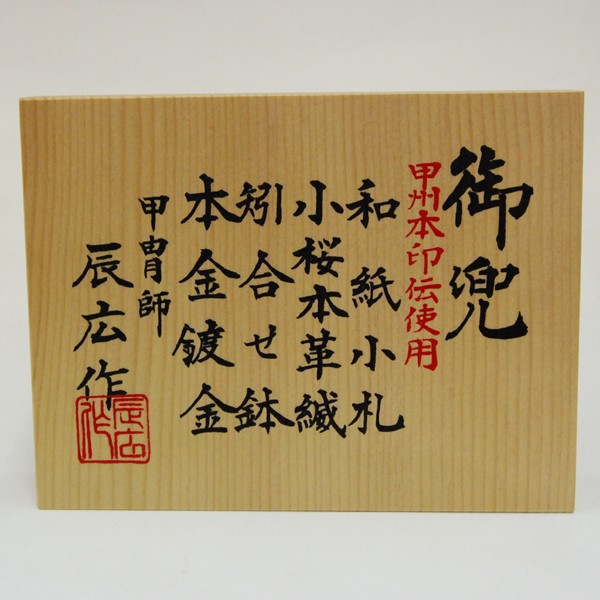 御兜
甲州本印伝使用
和紙小札
小桜本革縅
矧合せ鉢
本金鍍金
甲冑師
辰広作
辰広作